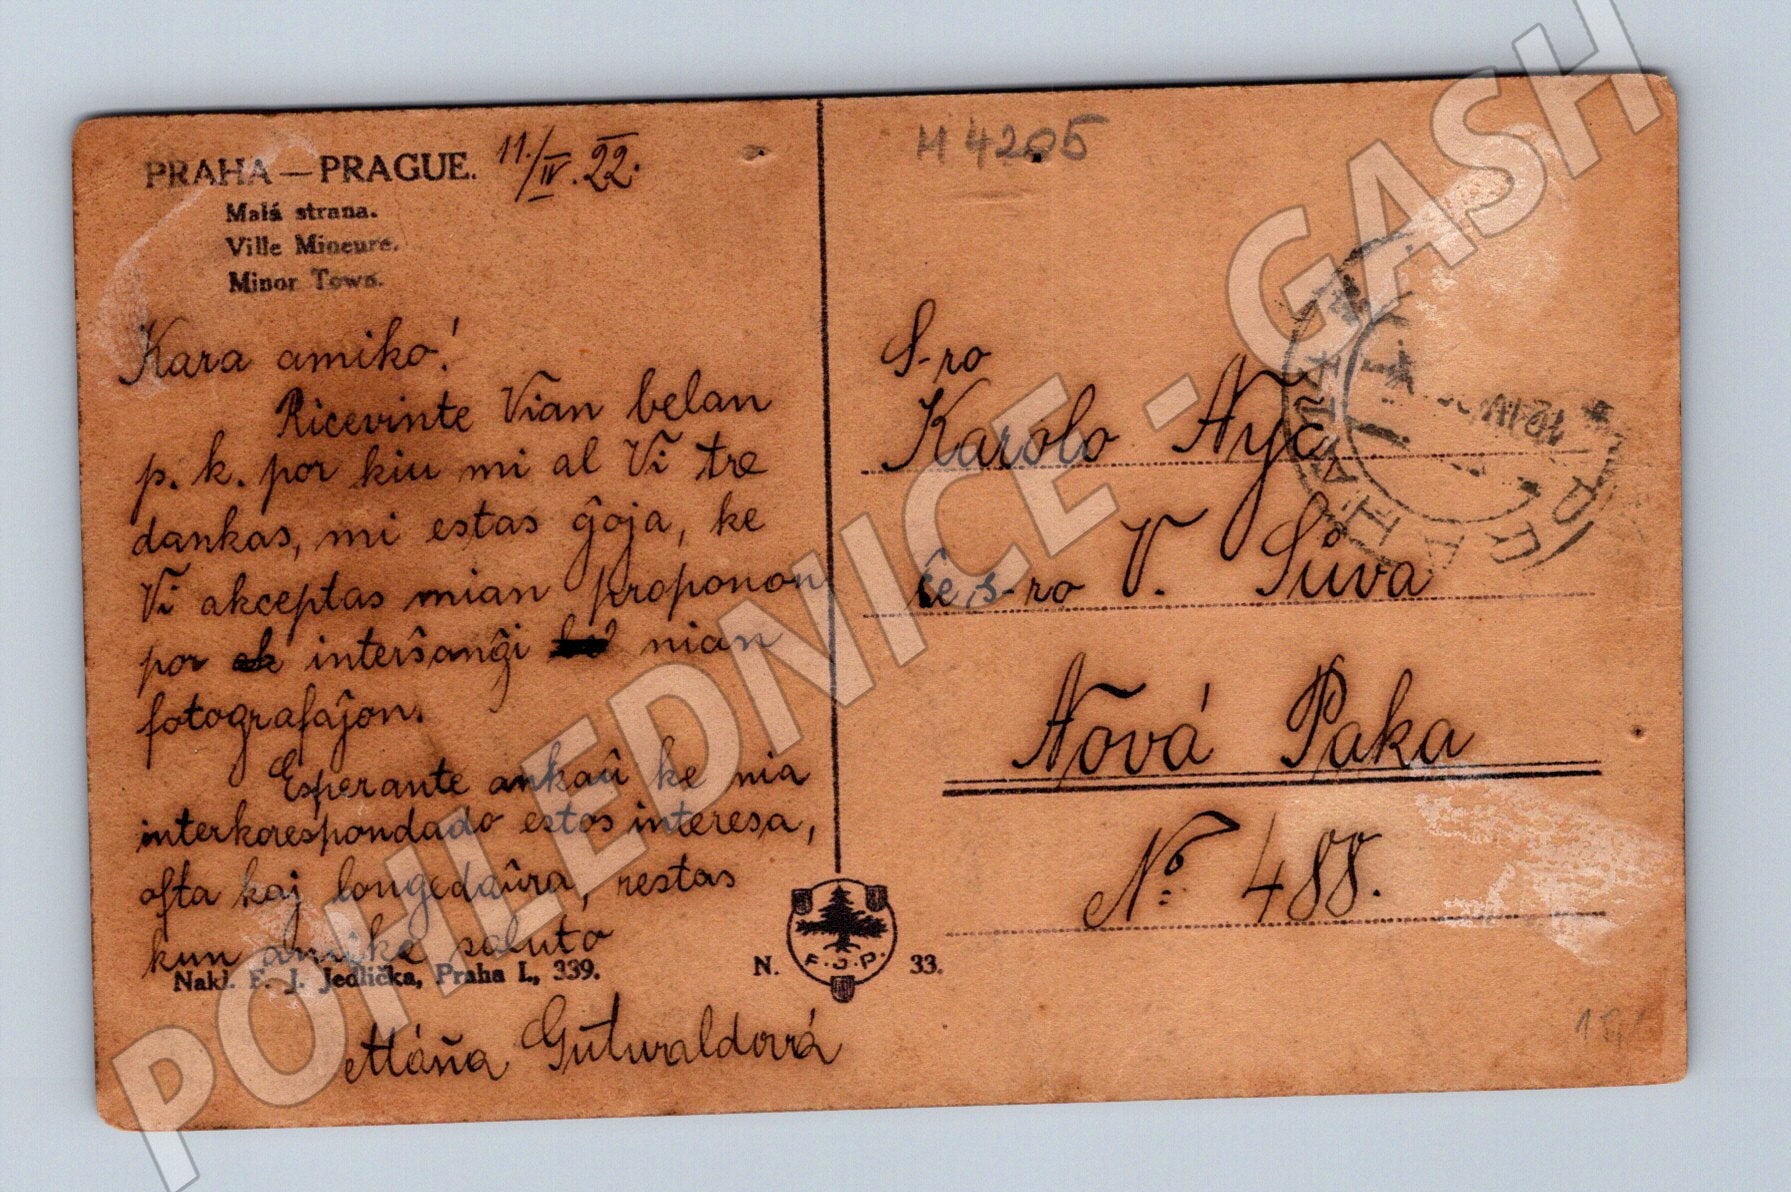 PRAHA — PRAGUE. 11./IV. 22.
Malá strana.
Ville Mineure.
Minor Town.
Kara amiko!
Ricevinte Vian belan
p. k. por kiu mi al Vi tre
dankas, mi estas ĝoja, ke
Vi akceptas mian proponon
por interŝanĝi nian
fotografaĵon.
Esperante ankaŭ ke nia
interkorespondado estos interesa,
ofta kaj longedaŭra, restas
kun amike saluto
Nakl. F. J. Jedlička, Praha I., 339.
Máňa Gutwaldová
N. F. J. P. 33.
H 4205
S-ro
Karolo Nyč
ĉe s-ro V. Sůva
Nová Paka
No 488.
PRAHA
POHLEDNICE - GASH